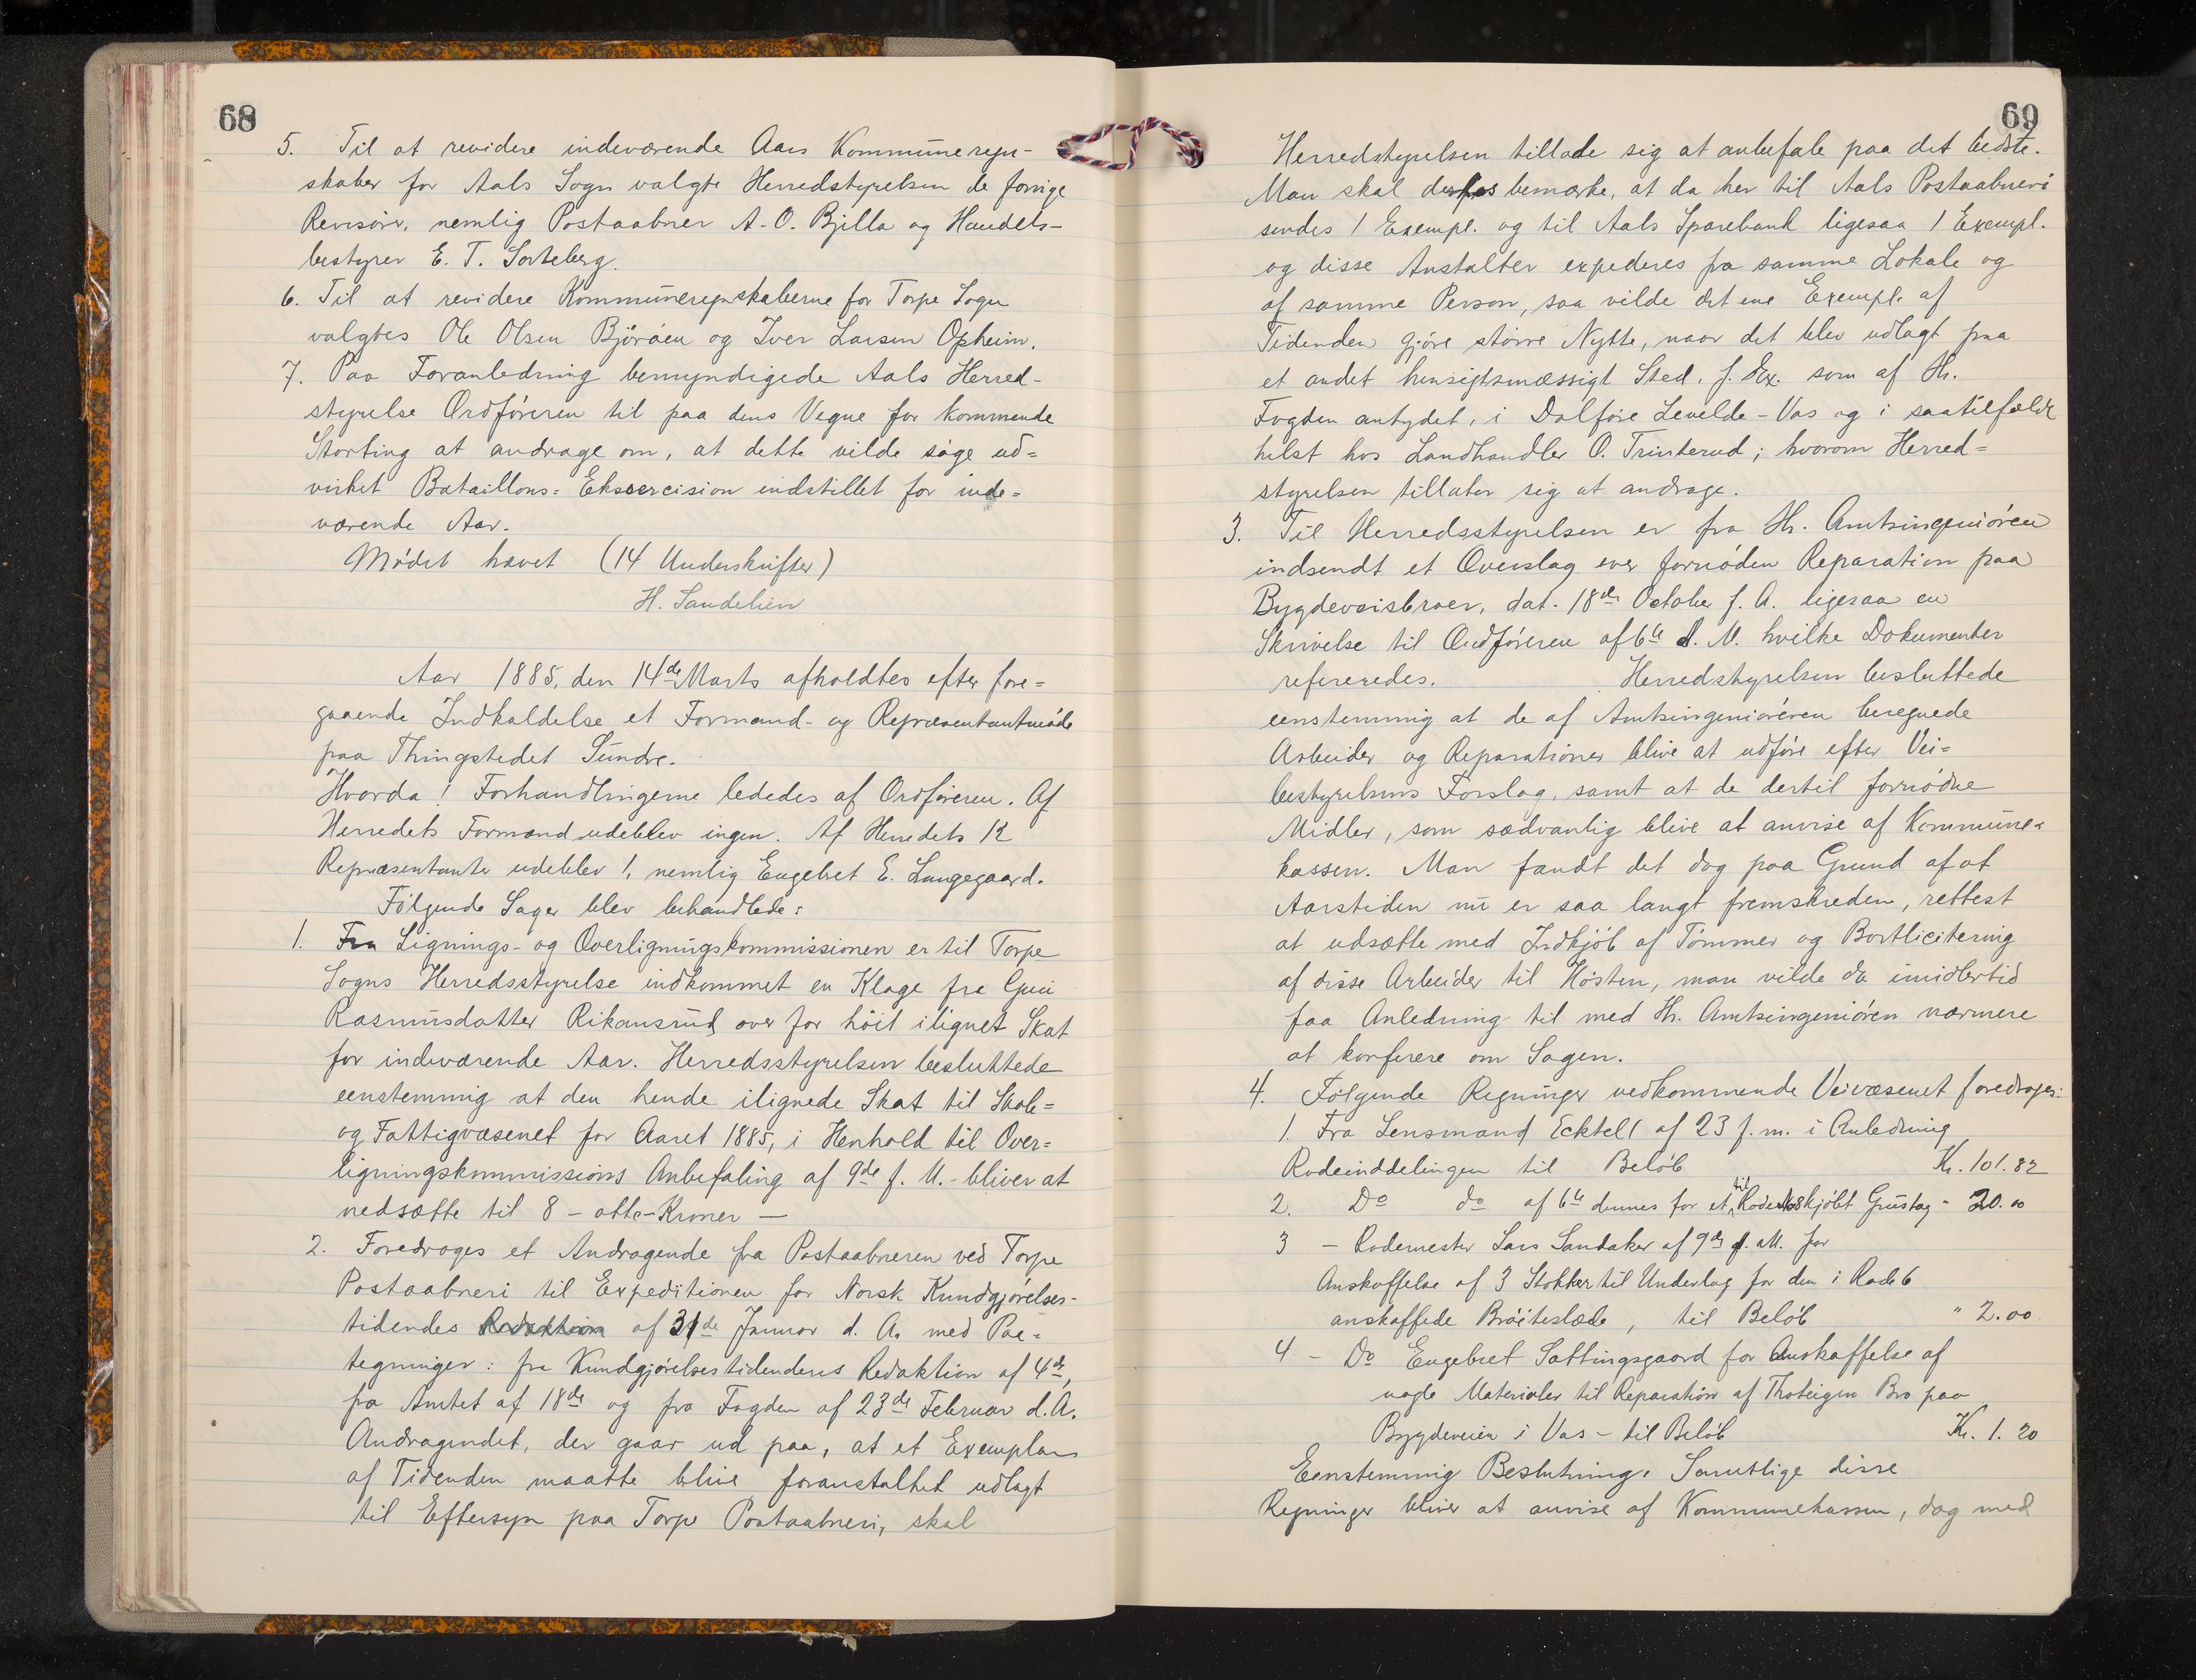 68
5. Til at revidere indeværende Aars Kommüneregn-
skaber for Aals Sogn valgte Herredstyrelsen de forrige
Revisörer, nemlig Postaabner A. O. Bjella og Handels-
bestyrer E. T. Sorteberg.
6. Til at revidere Kommüneregnskaberne for Torpe Sogn
valgtes Ole Olsen Björöen og Iver Larsen Opheim.
7. Paa Foranledning bemyndigede Aals Herred-
styrelse Ordföreren til paa dens Vegne for kommende
Storting at andrage om, at dette vilde söge ud=
virket Bataillons= Eksercision indstillet for inde=
værende Aar.
Mödet hævet (14 Underskrifter)
H. Sandelien
Aar 1885, den 14de Marts afholdtes efter fore=
gaaende Indkaldelse et Formand- og Repræsentantmöde
paa Thingstedet Sündre.
Hvorda! Forhandlingerne lededes af Ordföreren. Af
Herredets Formænd udeblev ingen. Af Herredets 12
Repræsentanter udeblev 1, nemlig Engebret E. Langegaard.
Fölgende Sager blev behandlede:
1. Fra Lignings- og Overligningskommissionen er til Torpe
Sogns Herredsstyrelse indkommet en Klage fra Guri
Rasmüsdatter Rikansrüd over for höit ilignet Skat
for indeværende Aar. Herredsstyrelsen besluttede
eenstemmig at den hende ilignede Skat til Skole=
og Fattigvæsenet for Aaret 1885, i Henhold til Over=
ligningskommissions Anbefaling af 9de f. M. - bliver at
nedsætte til 8 - otte - Kroner —
2. Foredroges et Andragende fra Postaabneren ved Torpe
Postaabneri til Expeditionen for Norsk Kundgjörelses-
tidendes Redaktion af 31de Januar d. A. med Paa=
tegninger: fra Kundgjörelsestidenderes Redaktion af 4de,
fra Amtet af 18de og fra Fogden af 23de Februar d. A.
Andragendet, der gaar ud paa, at et Exemplar
af Tidenden maatte blive foranstaltet udlagt
til Eftersyn paa Torpe Postaabneri, skal
69
Herredstyrelsen tillade sig at anbefale paa det bedste.
Man skal derhos bemærke, at da her til Aals Postaabneri
sendes 1 Exempl. og til Aals Sparebank ligesaa 1 Exempl.
og disse Anstalter expederes fra samme Lokale og
af samme Person, saa vilde det ene Exempl. af
Tidenden gjöre större Nytte, naar det blev udlagt paa
et andet hensigtsmæssigt Sted, f. Ex. som af Hr.
Fogden antydet, i Dalföre Levelde - Vas og i saatilfælde
helst hos Landhandler O. Trinterud; hvorom Herred=
styrelsen tillater sig at andrage.
3. Til Herredsstyrelsen er fra Hr. Amtsingeniören
indsendt et Overslag over fornöden Reparation paa
Bygdeveisbroer, dat. 18de October f. A. ligesaa en
Skrivelse til Ordföreren af 6te d. M. hvilke Dokumenter
refereredes. Herredstyrelsen besluttede
eenstemmig at de af Amtsingeniöreren beregnede
Arbeider og Reparationer blive at udföre efter Vei=
bestyrelsens Forslag, samt at de dertil fornödne
Midler, som sædvanlig blive at anvise af Kommüne=
kassen. Man fandt det dog paa Grund af at
Aarstiden nü er saa langt fremskreden, rettest
at udsætte med Indkjöb af Tömmer og Bortlicitering
af disse Arbeider til Hösten, man vilde da imidlertid
faa Anledning til med Hr. Amtsingeniören nærmere
at konferere om Sagen.
4. Fölgende Regninger vedkommende Veivæsenet foredroges:
1. Fra Lensmand Ecktell af 23 f. m. i Anledning
Rodeinddelingen til Belöb Kr. 101.82
2. Do do af 6te dennes for et til Rode No 8 kjöbt Grüstag - 20.00
3 - Rodemester Lars Sandaker af 9de d. M. for
Anskaffelse af 3 Stokker til Underlag for den i Rode 6
anskaffede Bröiteslæde, til Belöb " 2.00
4 - Do Engebret Sattingsgaard for Anskaffelse af
nogle Materialer til Reparation af Thoteigen Bro paa
Bygdeveien i Vas - til Belöb Kr. 1.20
Eenstemmig Beslutning: Samtlige disse
Regninger bliver at anvise af Kommunekassen, dog med